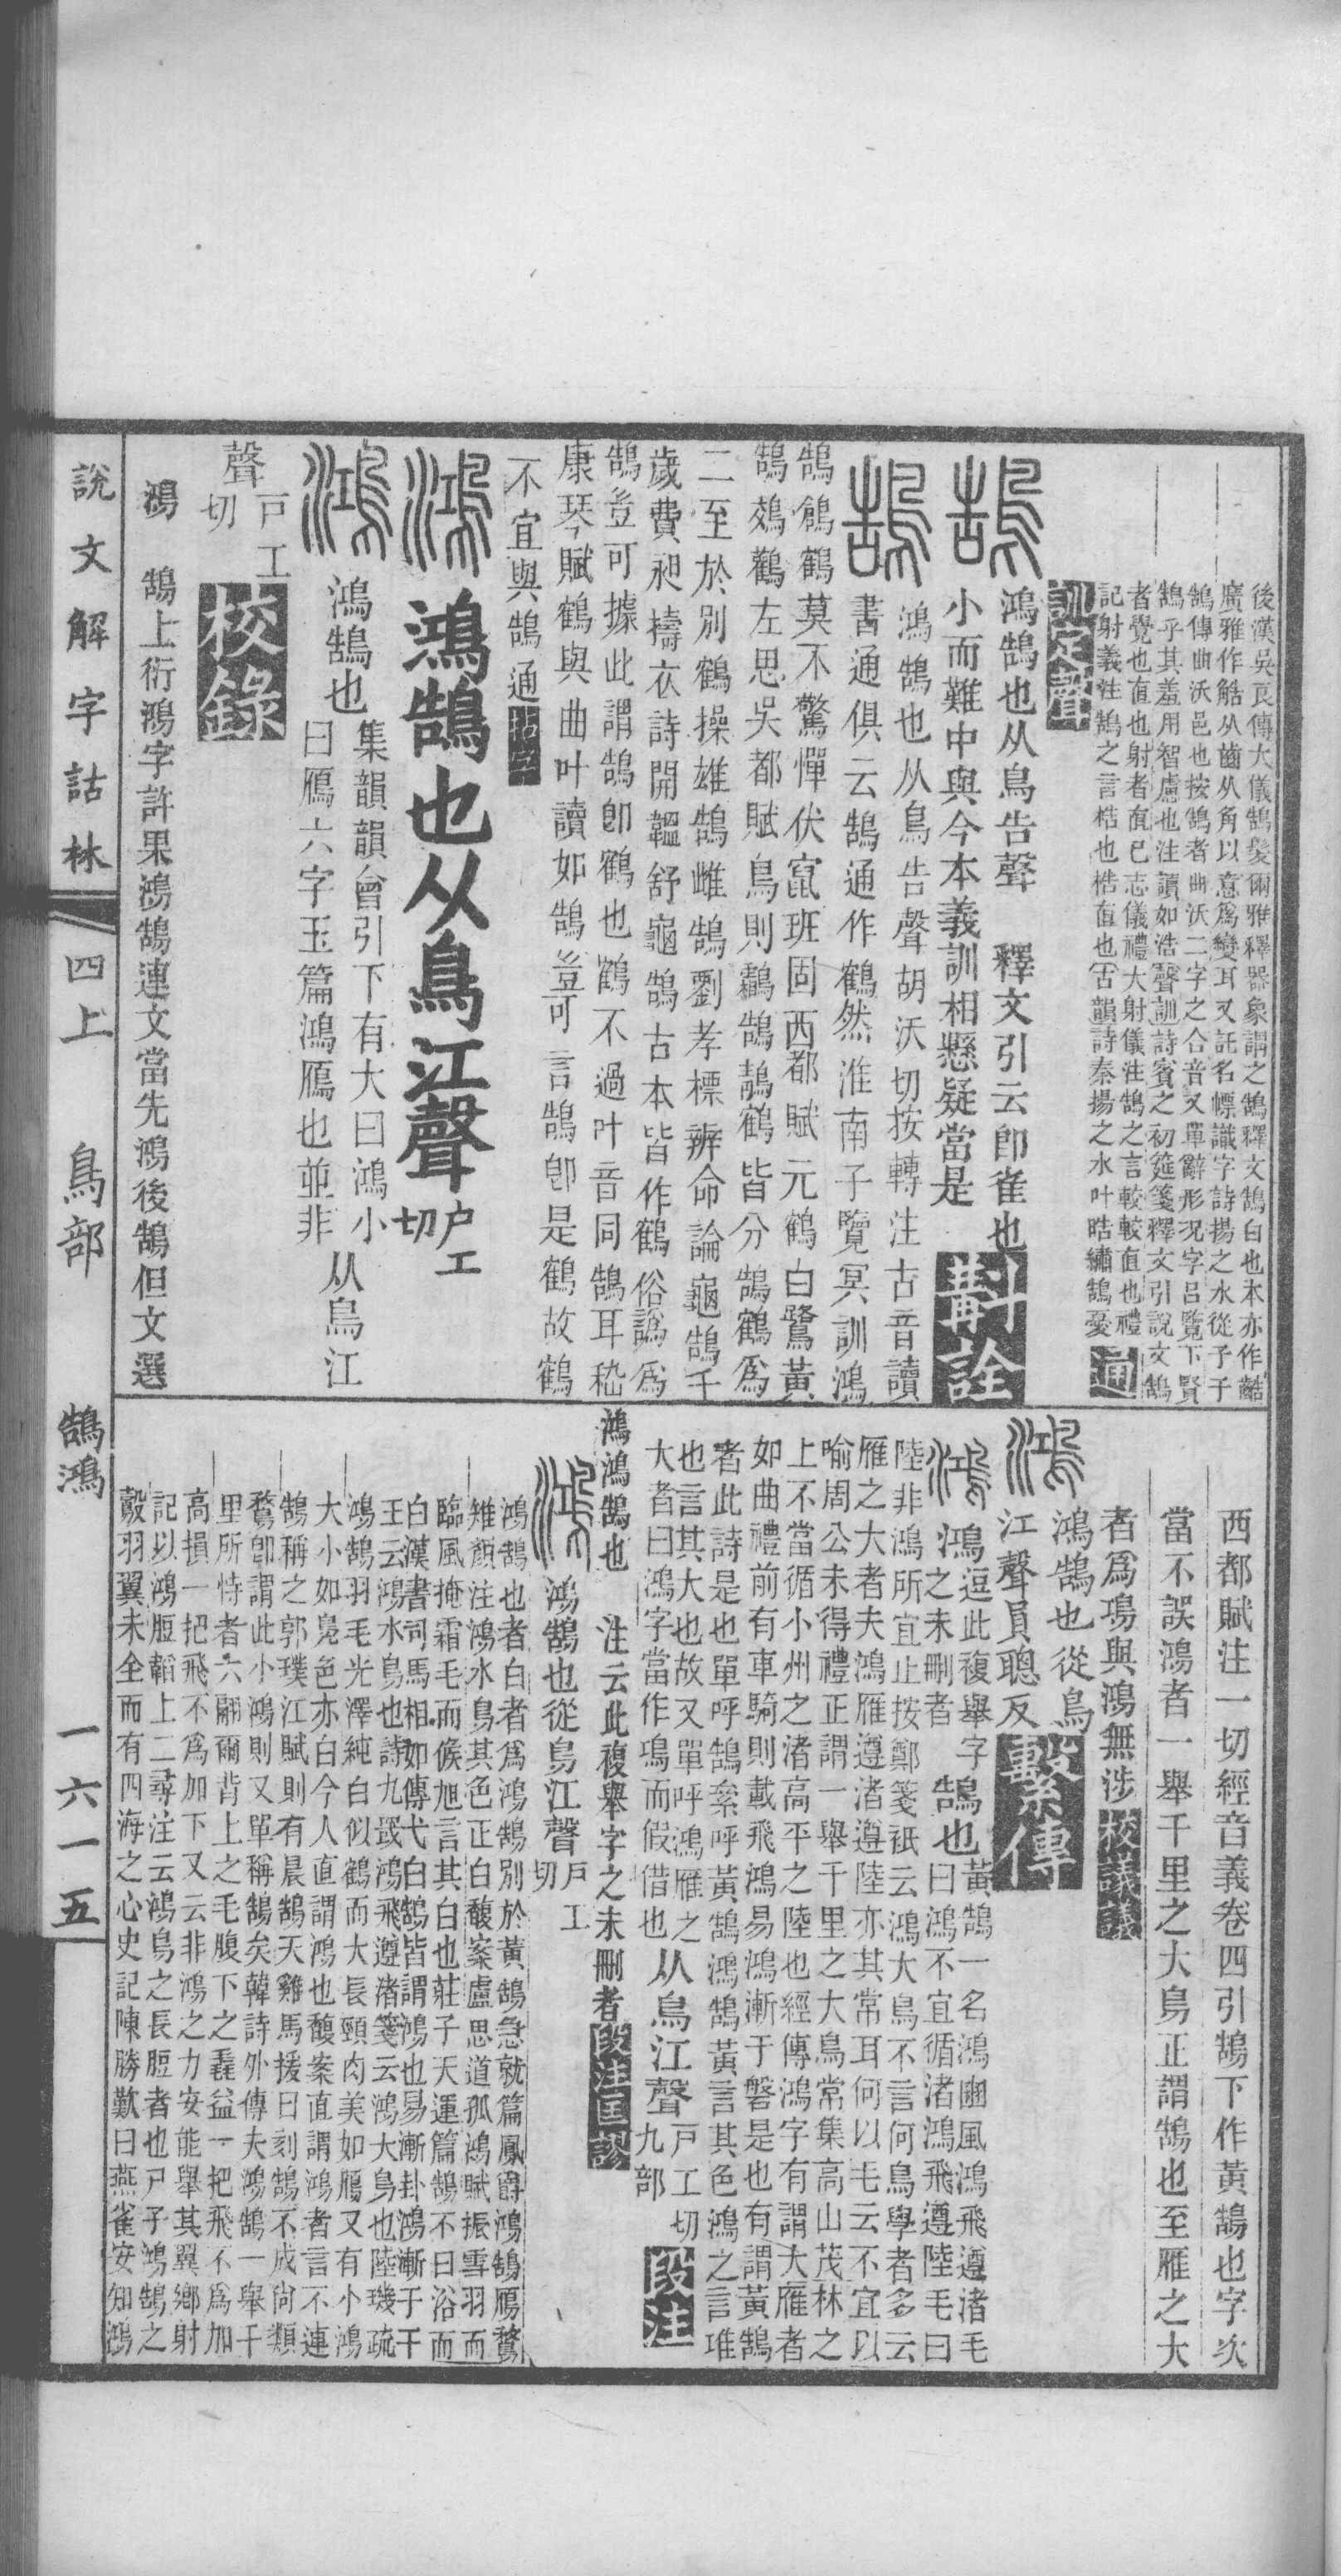 後漢吳良傳大儀鵠髮爾雅釋器象謂之鵠釋文鵠白也本亦作䚛
廣雅作䚛从齒从角以意爲變耳又託名幖識字詩揚之水從子于
鵠傳曲沃邑也按鵠者曲沃二字之合音又單辭形况字呂覽下賢
鵠乎其羞用智慮也注讀如浩聲訓詩賓之初筵箋釋文引說文鵠
者覺也直也射者直己志儀禮大射儀注鵠之言較較直也禮
記射義注鵠之言梏也梏直也古韻詩秦揚之水叶晧繡鵠憂 通
訓定聲
鵠 鴻鵠也从鳥告聲 釋文引云卽雀也
小而難中與今本義訓相懸疑當是 斠詮
鵠 鴻鵠也从鳥告聲胡沃切按轉注古音讀
書通俱云鵠通作鶴然淮南子覽冥訓鴻
鵠鶬鶴莫不驚憚伏竄班固西都賦元鶴白鷺黃
鵠鵁鸛左思吳都賦鳥則鸖鵠鶄鶴皆分鵠鶴爲
二至於別鶴操雄鵠雌鵠劉孝標辨命論龜鵠千
歲費昶擣衣詩開韞舒龜鵠古本皆作鶴俗譌爲
鵠豈可據此謂鵠卽鶴也鶴不過叶音同鵠耳嵇
康琴賦鶴與曲叶讀如鵠豈可言鵠卽是鶴故鶴
不宜與鵠通 拈字
鴻 鴻鵠也从鳥江聲 户工切
鴻 鴻鵠也 集韻韻會引下有大曰鴻小
曰鴈六字玉篇鴻鴈也並非 从鳥江
聲 戸工切 校錄
鴻 鵠上衍鴻字許果鴻鵠連文當先鴻後鵠但文選
西都賦注一切經音義卷四引鵠下作黃鵠也字次
當不誤鴻者一舉千里之大鳥正謂鵠也至雁之大
者爲鳿與鴻無涉 校議議
鴻 鴻鵠也從鳥
江聲員聰反 繫傳
鴻 鴻 逗此複舉字之未刪者 鵠也 黃鵠一名鴻豳風鴻飛遵渚毛
曰鴻不宜循渚鴻飛遵陸毛曰
陸非鴻所宜止按鄭箋祇云鴻大鳥不言何鳥學者多云
雁之大者夫鴻雁遵渚遵陸亦其常耳何以毛云不宜以
喻周公未得禮正謂一舉千里之大鳥常集高山茂林之
上不當循小州之渚高平之陸也經傳鴻字有謂大雁者
如曲禮前有車騎則載飛鴻易鴻漸于磐是也有謂黃鵠
者此詩是也單呼鵠絫呼黃鵠鴻鵠黃言其色鴻之言𨾊
也言其大也故又單呼鴻雁之
大者曰鴻字當作鳿而假借也 从鳥江聲 戸工切九部 段注
鴻鴻鵠也 注云此複舉字之未刪者 段注匡謬
鴻 鴻鵠也從鳥江聲 戸工切
鴻鵠也者白者爲鴻鵠別於黃鵠急就篇鳳爵鴻鵠鴈鶩
雉顏注鴻水鳥其色正白馥案盧思道孤鴻賦振雪羽而
臨風掩霜毛而候旭言其白也莊子天運篇鵠不日浴而
白漢書司馬相如傳弋白鵠皆謂鴻也易漸卦鴻漸于干
王云鴻水鳥也詩九罭鴻飛遵渚箋云鴻大鳥也陸璣疏
鴻鵠羽毛光澤純白似鶴而大長頸肉美如鴈又有小鴻
大小如鳧色亦白今人直謂鴻也馥案直謂鴻者言不連
鵠稱之郭璞江賦則有晨鵠天雞馬援曰刻鵠不成尙類
鶩卽謂此小鴻則又單稱鵠矣韓詩外傳夫鴻鵠一舉千
里所恃者六翮爾背上之毛腹下之毳益一把飛不爲加
高損一把飛不爲加下又云非鴻之力安能舉其翼鄉射
記以鴻脰韜上二尋注云鴻鳥之長脰者也尸子鴻鵠之
鷇羽翼未全而有四海之心史記陳勝歎曰燕雀安知鴻
說文解字詁林 四上 鳥部 鵠鴻 一六一五